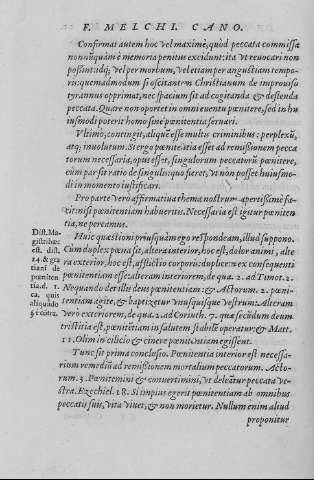 F. MELCHI. CANO.
Confirmat autem hoc vel maximè, quòd peccata commissa
nonnũquàm è memoria penitus excidunt: ita vt reuocari non
possint: idq; vel per morbum, vel etiam per angustiam tempo-
ris: quemadmodum si oscitantem Christianum de improuiso
tyrannus opprimat, nec spacium sit ad cogitanda & deflenda
peccata. Quare non oportet in omni euentu pœnitere, sed in hu
iusmodi poterit homo sinè pœnitentia seruari.
Vltimò, contingit, aliquẽ esse multis criminibus: perplexũ,
atq; inuolutum. Si ergo pœnitẽtia esset ad remissionem pecca
torum necessaria, opus esset, singulorum peccatorũ pœnitere,
cùm par sit ratio de singulis quo fieret, vt non posset huiusmo-
di in momento iustificari.
Pro parte verò affirmatiua thema nostrum apertissimè fa-
cit: nisi pœnitentiam habueritis. Necessaria est igitur pœniten
tia, ne pereamus.
Dist. Ma-
gistri habet
est. dist.
14. & gra
tiani de
pœniten
tia. d. 1.
ca. quis
aliquãdo
§ è cõtra.
Huic quæstioni priusquàm ego respondeam, illud suppono.
Cùm duplex pœna sit, altera interior, hoc est, dolor animi, alte
ra exterior, hoc est, afflictio corporis: duplicem ex consequenti
pœnitentiam esse: alteram interiorem, de qua. 2. ad Timot. 2.
Nequando det illis deus pœnitentiam: & Actorum. 2. pœni-
tentiam agite, & baptizetur vnusquisque vestrum. Alteram
verò exteriorem, de qua. 2. ad Corinth. 7. quæ secũdum deum
tristitia est, pœnitẽtiam in salutem stabilẽ operatur: & Matt.
11. Olim in cilicio & cinere pœnitentiam egissent.
Tunc sit prima conclusio. Pœnitentia interior est necessa-
rium remediũ ad remissionem mortalium peccatorum. Acto-
rum. 3. Pœnitemini & conuertimini, vt deleãtur peccata ve-
stra. Ezechiel. 18. Si impius egerit pœnitentiam ab omnibus
peccatis suis, vita viuet, & non morietur. Nullum enim aliud
proponitur